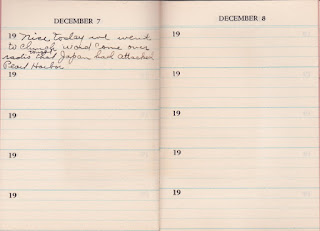 DECEMBER 7
19 Nice today we went
to Church word come over
tonight
radio that Japan had attacked
Pearl Harbor
19
19
19
19
DECEMBER 8
19
19
19
19
19